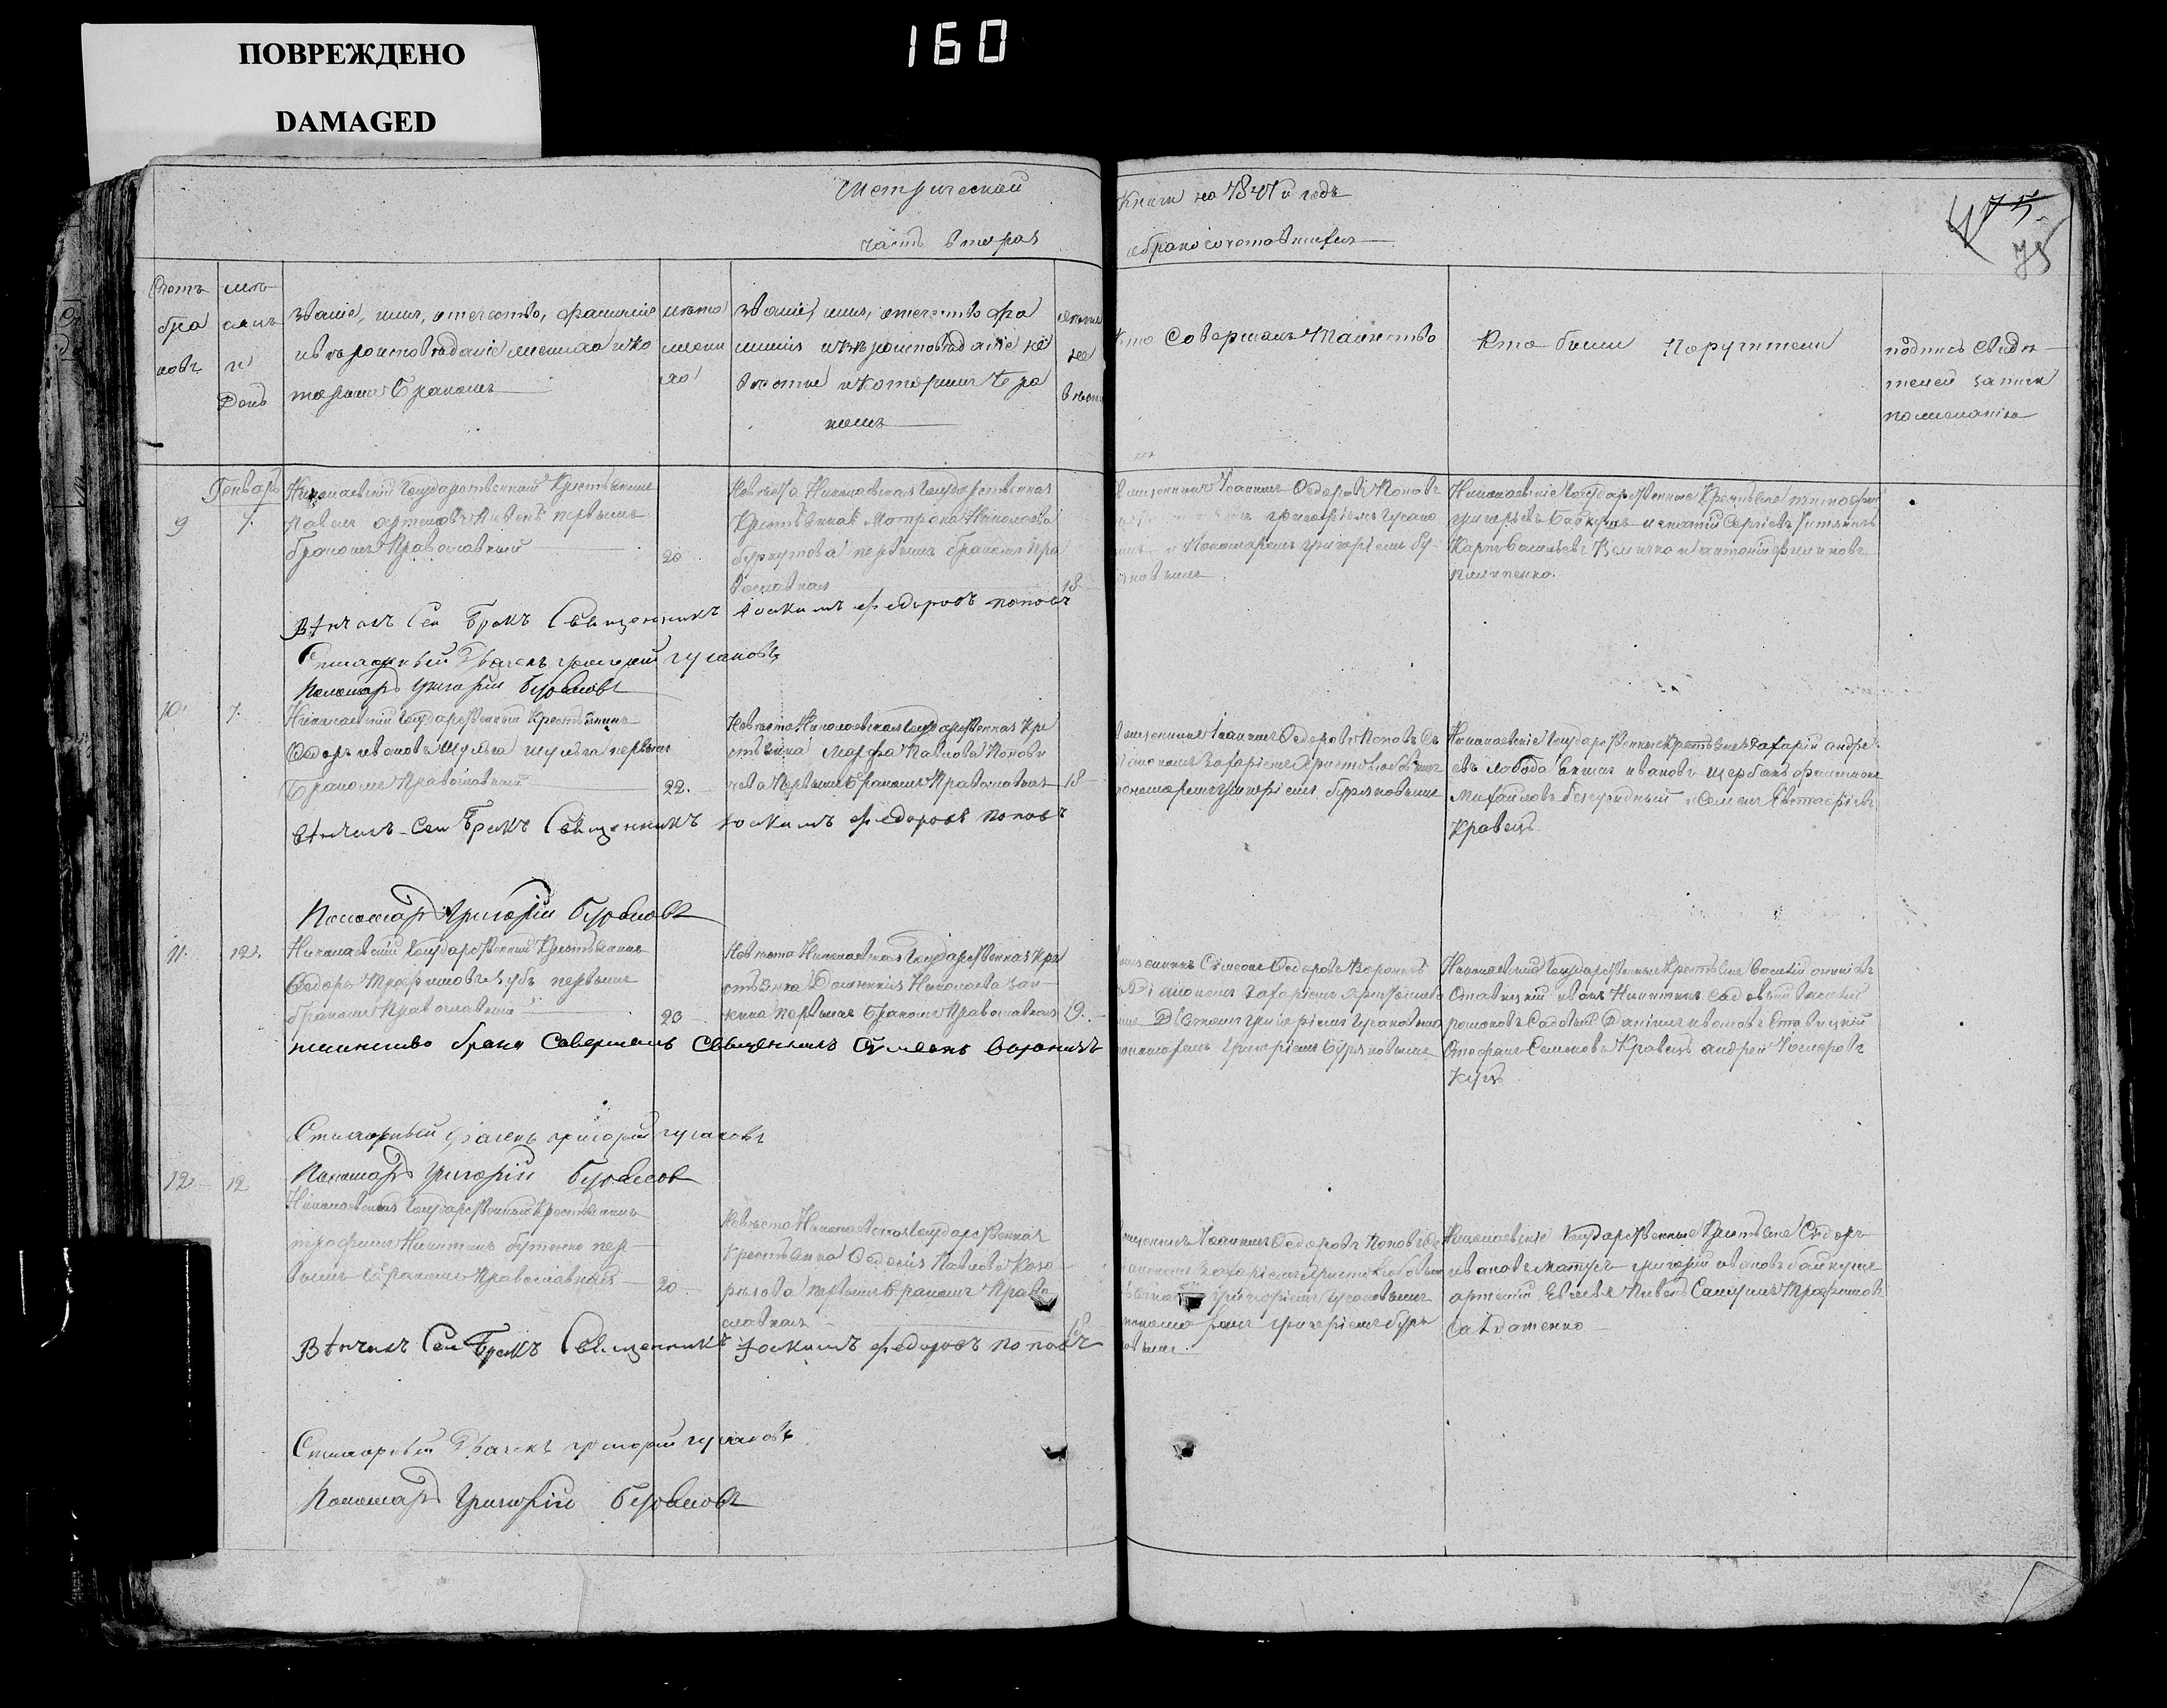 ПОВРЕЖДЕНО
DAMAGED
160
Метрической
часть вторая
Книги на 1847й годъ
о бракосочетавшихся
75
Счетъ
бра
ковъ
мѣ
сяцъ
и
день
званіе, имя, отечество, фамилія
и вѣроисповѣданіе жениха и ко
торымъ бракомъ
лѣта
жени
ха
званіе, имя, отечество фа
милія и вѣроисповѣданіе не
вѣсты и которымъ бра
комъ
не
вѣсты
кто совершалъ таинство
Кто были поручители
подпись свидѣ
телей записи
по желанію
Генварь
9
7.
Николаевскій государственный крестьянинъ
Павелъ Артемовъ Пивень первымъ
бракомъ православный
20
Невѣста Николаевская государственная
крестьянка Мотрона Николаева
первымъ бракомъ пра
вославная
18
Іоаннъ Федоровъ Поповъ
Григоріемъ Гусако
и Пономаремъ Григоріемъ Бу
Николаевскіе государственные крестьяне
Григорьевъ Байкушъ Сергіевъ
Карпъ Васильевъ Величко и Антоній Филиповъ
Пилипенко.
Вѣнчалъ сей бракъ священникъ Іоакимъ Федоровъ Поповъ
Стихарный дьячекъ Григорій Гусаковъ
Пономарь Григорій Буряковъ
10.
7.
Николаевскій государственный крестьянинъ
Федоръ Ивановъ Шульга первымъ
бракомъ православный
22.
Невѣста Николаевская государственная кре
стьянка Марфа Павлова Попови
чева первымъ бракомъ православная
18
Іоаннъ Федоровъ Поповъ съ
діакономъ Захаріемъ Христолюбовымъ
пономаремъ Григоріемъ Буряковымъ
Николаевскіе государственные крестьяне Захарій Андре
евъ Лобода Ивановъ Щербакъ Филимонъ
Михайловъ Семенъ Евстафіевъ
Кравецъ.
Вѣнчалъ сей бракъ священникъ Іоакимъ Федоровъ Поповъ
Пономарь Григорій Буряковъ
11.
12.
Николаевскій государственный крестьянинъ
Федоръ Трофимовъ Зубъ первымъ
бракомъ православный
23
Невѣста Николаевская государственная кре
стьянка Домникія Николаева
первымъ бракомъ православная
19.
Симеонъ Федоровъ Воронинъ
съ Діакономъ Захаріемъ
Дьячкомъ Григоріемъ Гусаковымъ
пономаремъ Григоріемъ Буряковымъ
Николаевскіе государственные крестьяне Василій
Ставицкій Иванъ Никитинъ Садовый Василій
Романовъ Садовый Даніилъ Ивановъ Ставицкій
Стефанъ Семеновъ Кравецъ Андрей
таинство брака совершалъ священникъ Симеонъ Воронинъ
Стихарный дьячекъ Григорій Гусаковъ
Пономарь Григорій Буряковъ
12
12
Николаевскій государственный крестьянинъ
Трофимъ Никитинъ Бутенко пер
вымъ бракомъ православный
20
Невѣста Николаевская государственная
крестьянка Федосія Павлова
первымъ бракомъ право
славная
Іоаннъ Федоровъ Поповъ съ
Захаріемъ Христолюбовымъ
Григоріемъ Гусаковымъ
Григоріемъ Буря
ковымъ.
Николаевскіе государственные крестьяне Сидоръ
Ивановъ Григорій Ивановъ Байкушъ
Артемій Пивень Самуилъ Трофимовъ
Вѣнчалъ сей бракъ священникъ Іоакимъ Федоровъ Поповъ
Стихарный дьячекъ Григорій Гусаковъ
Пономарь Григорій Буряковъ